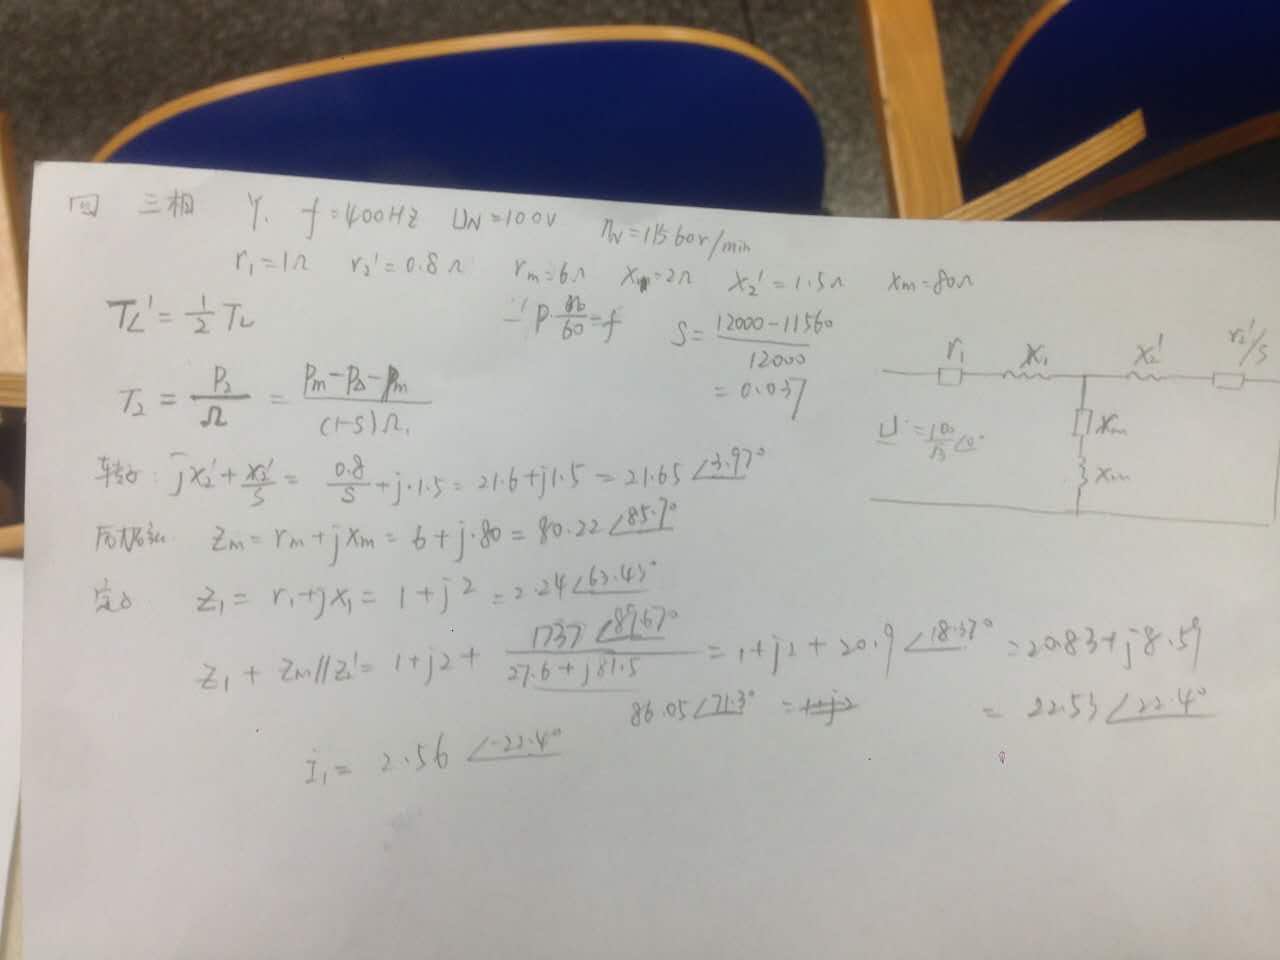 四 三相 Y. f=400HZ UN=100V nN=11560r/min
r1=1Ω r2'=0.8Ω rm=6Ω X1=2Ω X2'=1.5Ω Xm=80Ω
TL'=1/2 TL P·n0/60=f S=(12000-11560)/12000
=0.037
T2 = P2/Ω = (Pm-PΔ-Pm)/((1-S)Ω1)
转子: jX2'+r2'/S = 0.8/S+j·1.5=21.6+j1.5=21.65∠3.97°
Zm=rm+jXm=6+j·80=80.22∠85.7°
定子 Z1=r1+jX1=1+j2=2.24∠63.43°
Z1+Zm//Z2'=1+j2+ 1737∠89.67°/(27.6+j81.5) =1+j2+20.9∠18.37°=20.83+j8.59
86.05∠71.3° =1+j2 = 22.53∠22.4°
İ1= 2.56∠-22.4°
r1 X1 X2' r2'/S
U̇=100/√3∠0° rm
Xm